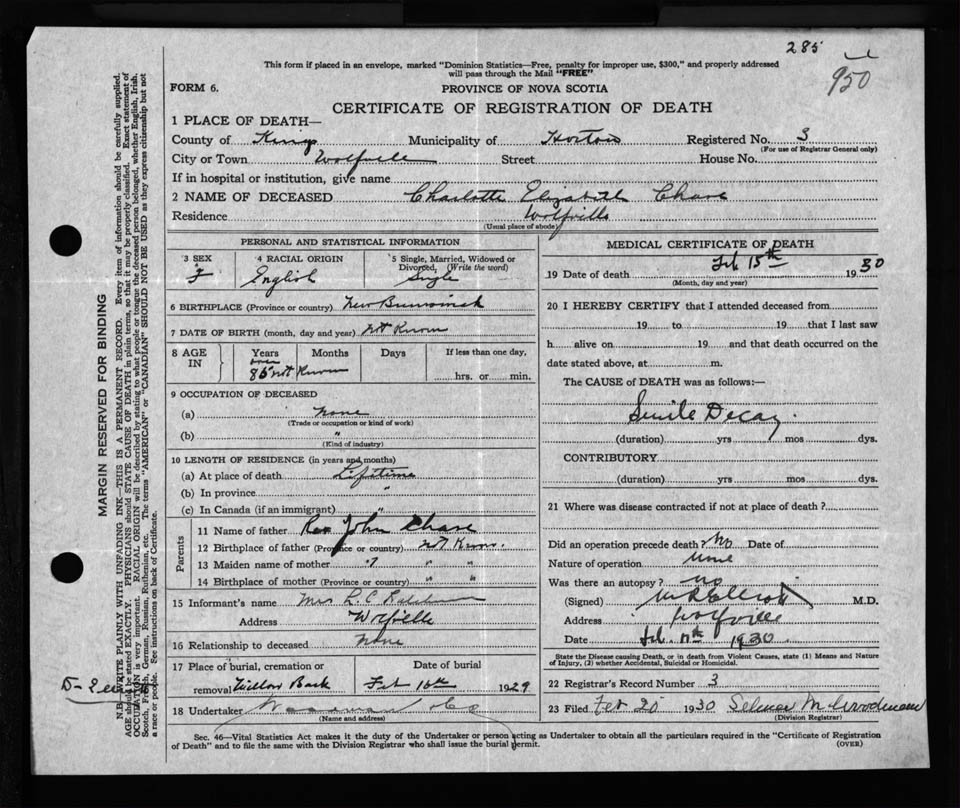 285
950
This form if placed in an envelope, marked "Dominion Statistics—Free, penalty for improper use, $300," and properly addressed
will pass through the Mail "FREE"
FORM 6.
PROVINCE OF NOVA SCOTIA
CERTIFICATE OF REGISTRATION OF DEATH
1 PLACE OF DEATH—
County of Kings Municipality of Horton Registered No. 3
(For use of Registrar General only)
City or Town Wolfville Street House No.
If in hospital or institution, give name
2 NAME OF DECEASED Charlotte Elizabeth Chase
Residence Wolfville
(Usual place of abode)
PERSONAL AND STATISTICAL INFORMATION
3 SEX F
4 RACIAL ORIGIN English
5 Single, Married, Widowed or
Divorced, (Write the word)
Single
6 BIRTHPLACE (Province or country) New Brunswick
7 DATE OF BIRTH (month, day and year) not Known
8 AGE IN
Years Months Days If less than one day,
over
85 not Known hrs. or min.
9 OCCUPATION OF DECEASED
(a) none
(Trade or occupation or kind of work)
(b) "
(Kind of industry)
10 LENGTH OF RESIDENCE (in years and months)
(a) At place of death Lifetime
(b) In province "
(c) In Canada (if an immigrant) "
Parents
11 Name of father Rev John Chase
12 Birthplace of father (Province or country) not Known.
13 Maiden name of mother " " "
14 Birthplace of mother (Province or country) " "
15 Informant's name Mrs L. C
Address Wolfville
16 Relationship to deceased None
17 Place of burial, cremation or
removal Willow Bank
Date of burial
Feb 1929
18 Undertaker
(Name and address)
MEDICAL CERTIFICATE OF DEATH
19 Date of death Feb 15th 1930
(Month, day and year)
20 I HEREBY CERTIFY that I attended deceased from
19 to 19 that I last saw
h alive on 19 and that death occurred on the
date stated above, at m.
The CAUSE of DEATH was as follows:—
Senile Decay.
(duration) yrs mos dys.
CONTRIBUTORY
(duration) yrs mos dys.
21 Where was disease contracted if not at place of death?
Did an operation precede death? No Date of
Nature of operation None
Was there an autopsy? no
(Signed) M.D.
Address Wolfville
Date Feb 17th 1930
State the Disease causing Death, or in death from Violent Causes, state (1) Means and Nature
of Injury, (2) whether Accidental, Suicidal or Homicidal.
22 Registrar's Record Number 3
23 Filed Feb 20 1930 Selmer M. Woodman
(Division Registrar)
Sec. 46—Vital Statistics Act makes it the duty of the Undertaker or person acting as Undertaker to obtain all the particulars required in the "Certificate of Registration
of Death" and to file the same with the Division Registrar who shall issue the burial permit.
(OVER)
MARGIN RESERVED FOR BINDING
N.B.—WRITE PLAINLY WITH UNFADING INK—THIS IS A PERMANENT RECORD. Every item of information should be carefully supplied.
AGE should be stated EXACTLY. PHYSICIANS should STATE CAUSE OF DEATH in plain terms, so that it may be properly classified. Exact statement of
OCCUPATION is very important. RACIAL ORIGIN will be described by stating to what people or tongue the deceased person belonged, whether English, Irish,
Scotch, French, German, Russian, Ruthenian, etc. The terms "AMERICAN" or "CANADIAN" SHOULD NOT BE USED as they express citizenship but not
a race or people. See instructions on back of Certificate.